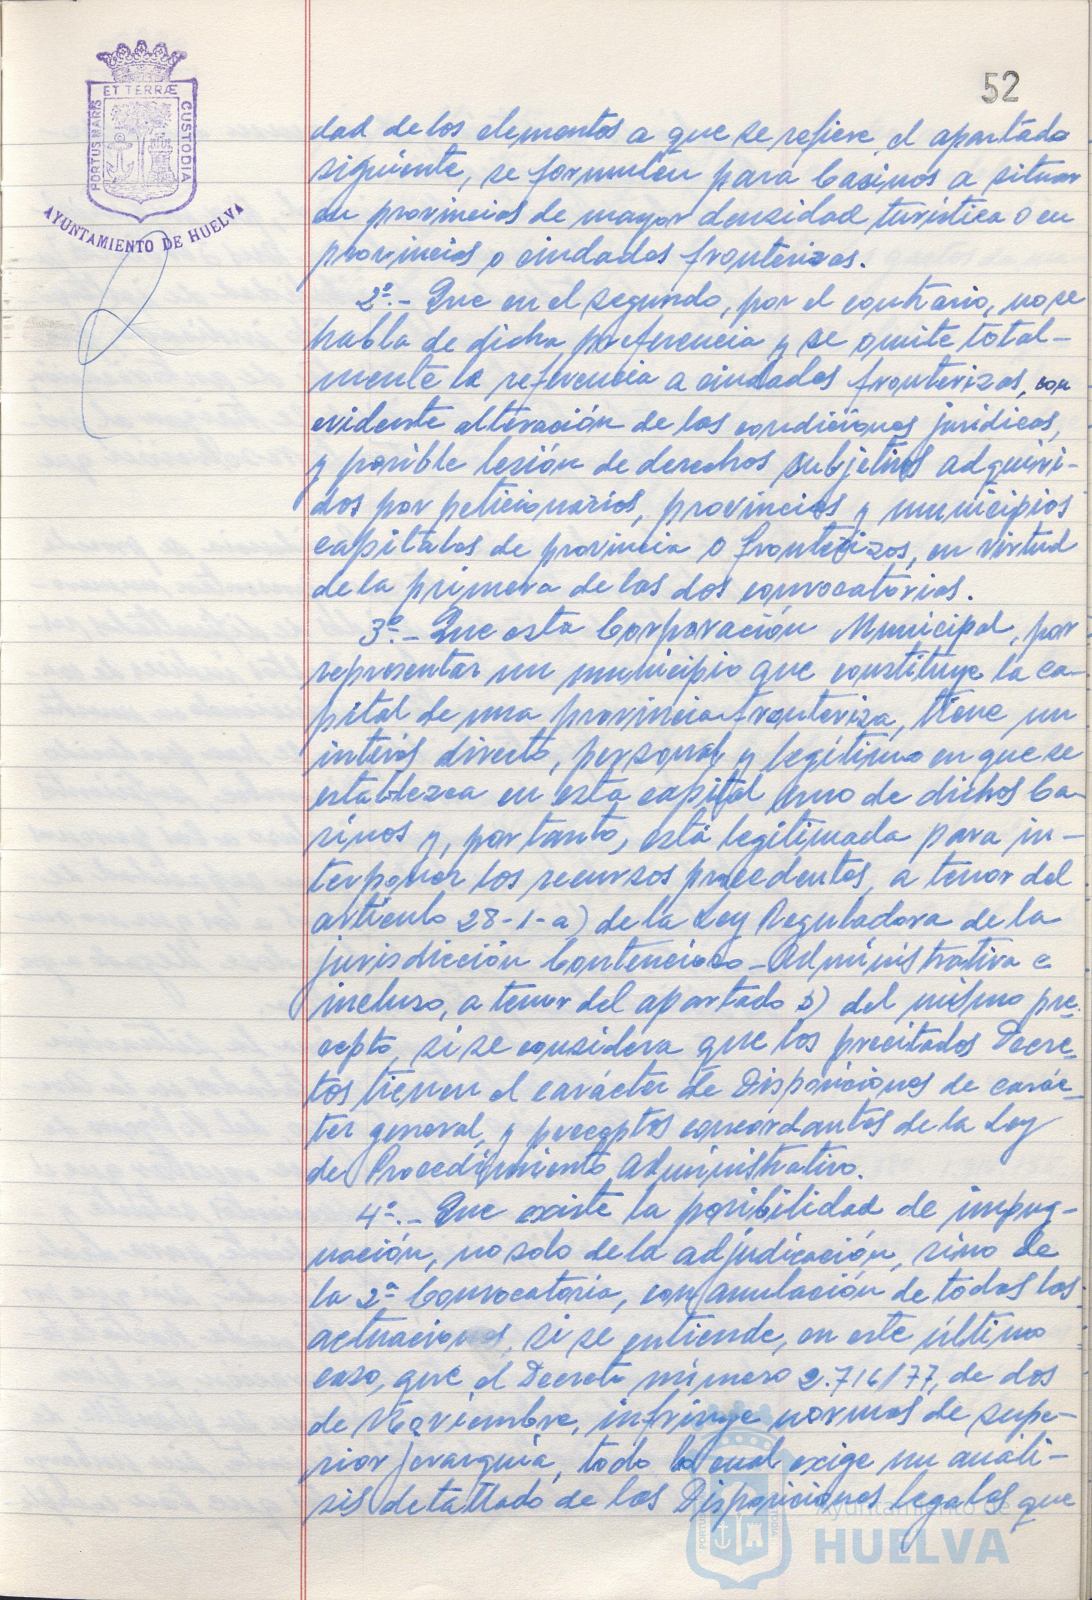 52
ET TERRÆ
PORTUS MARIS
CUSTODIA
AYUNTAMIENTO DE HUELVA
dad de los elementos a que se refiere el apartado
siguiente, se formulen para Casinos a situar
en provincias de mayor densidad turística o en
provincias o ciudades fronterizas.
2º.- Que en el segundo, por el contrario, no se
habla de dicha preferencia y se omite total-
mente la referencia a ciudades fronterizas, con
evidente alteración de las condiciones jurídicas,
y posible lesión de derechos subjetivos adquiri-
dos por peticionarios, provincias y municipios
capitales de provincia o fronterizos, en virtud
de la primera de las dos convocatorias.
3º.- Que esta Corporación Municipal, por
representar un municipio que constituye la ca-
pital de una provincia fronteriza, tiene un
interés directo, personal y legítimo en que se
establezca en esta capital uno de dichos Ca-
sinos y, por tanto, está legitimada para in-
terponer los recursos procedentes, a tenor del
artículo 28-1-a) de la Ley Reguladora de la
jurisdicción Contencioso-Administrativa e
incluso, a tenor del apartado b) del mismo pre-
cepto, si se considera que los precitados Decre-
tos tienen el carácter de Disposiciones de carác-
ter general, y preceptos concordantes de la Ley
de Procedimiento Administrativo.
4º.- Que existe la posibilidad de impug-
nación, no solo de la adjudicación, sino de
la 2ª Convocatoria, con anulación de todas las
actuaciones, si se entiende, en este último
caso, que el Decreto número 2.716/77, de dos
de Noviembre, infringe normas de supe-
rior jerarquía, todo lo cual exige un análi-
sis detallado de las Disposiciones legales que
Ayuntamiento de
HUELVA